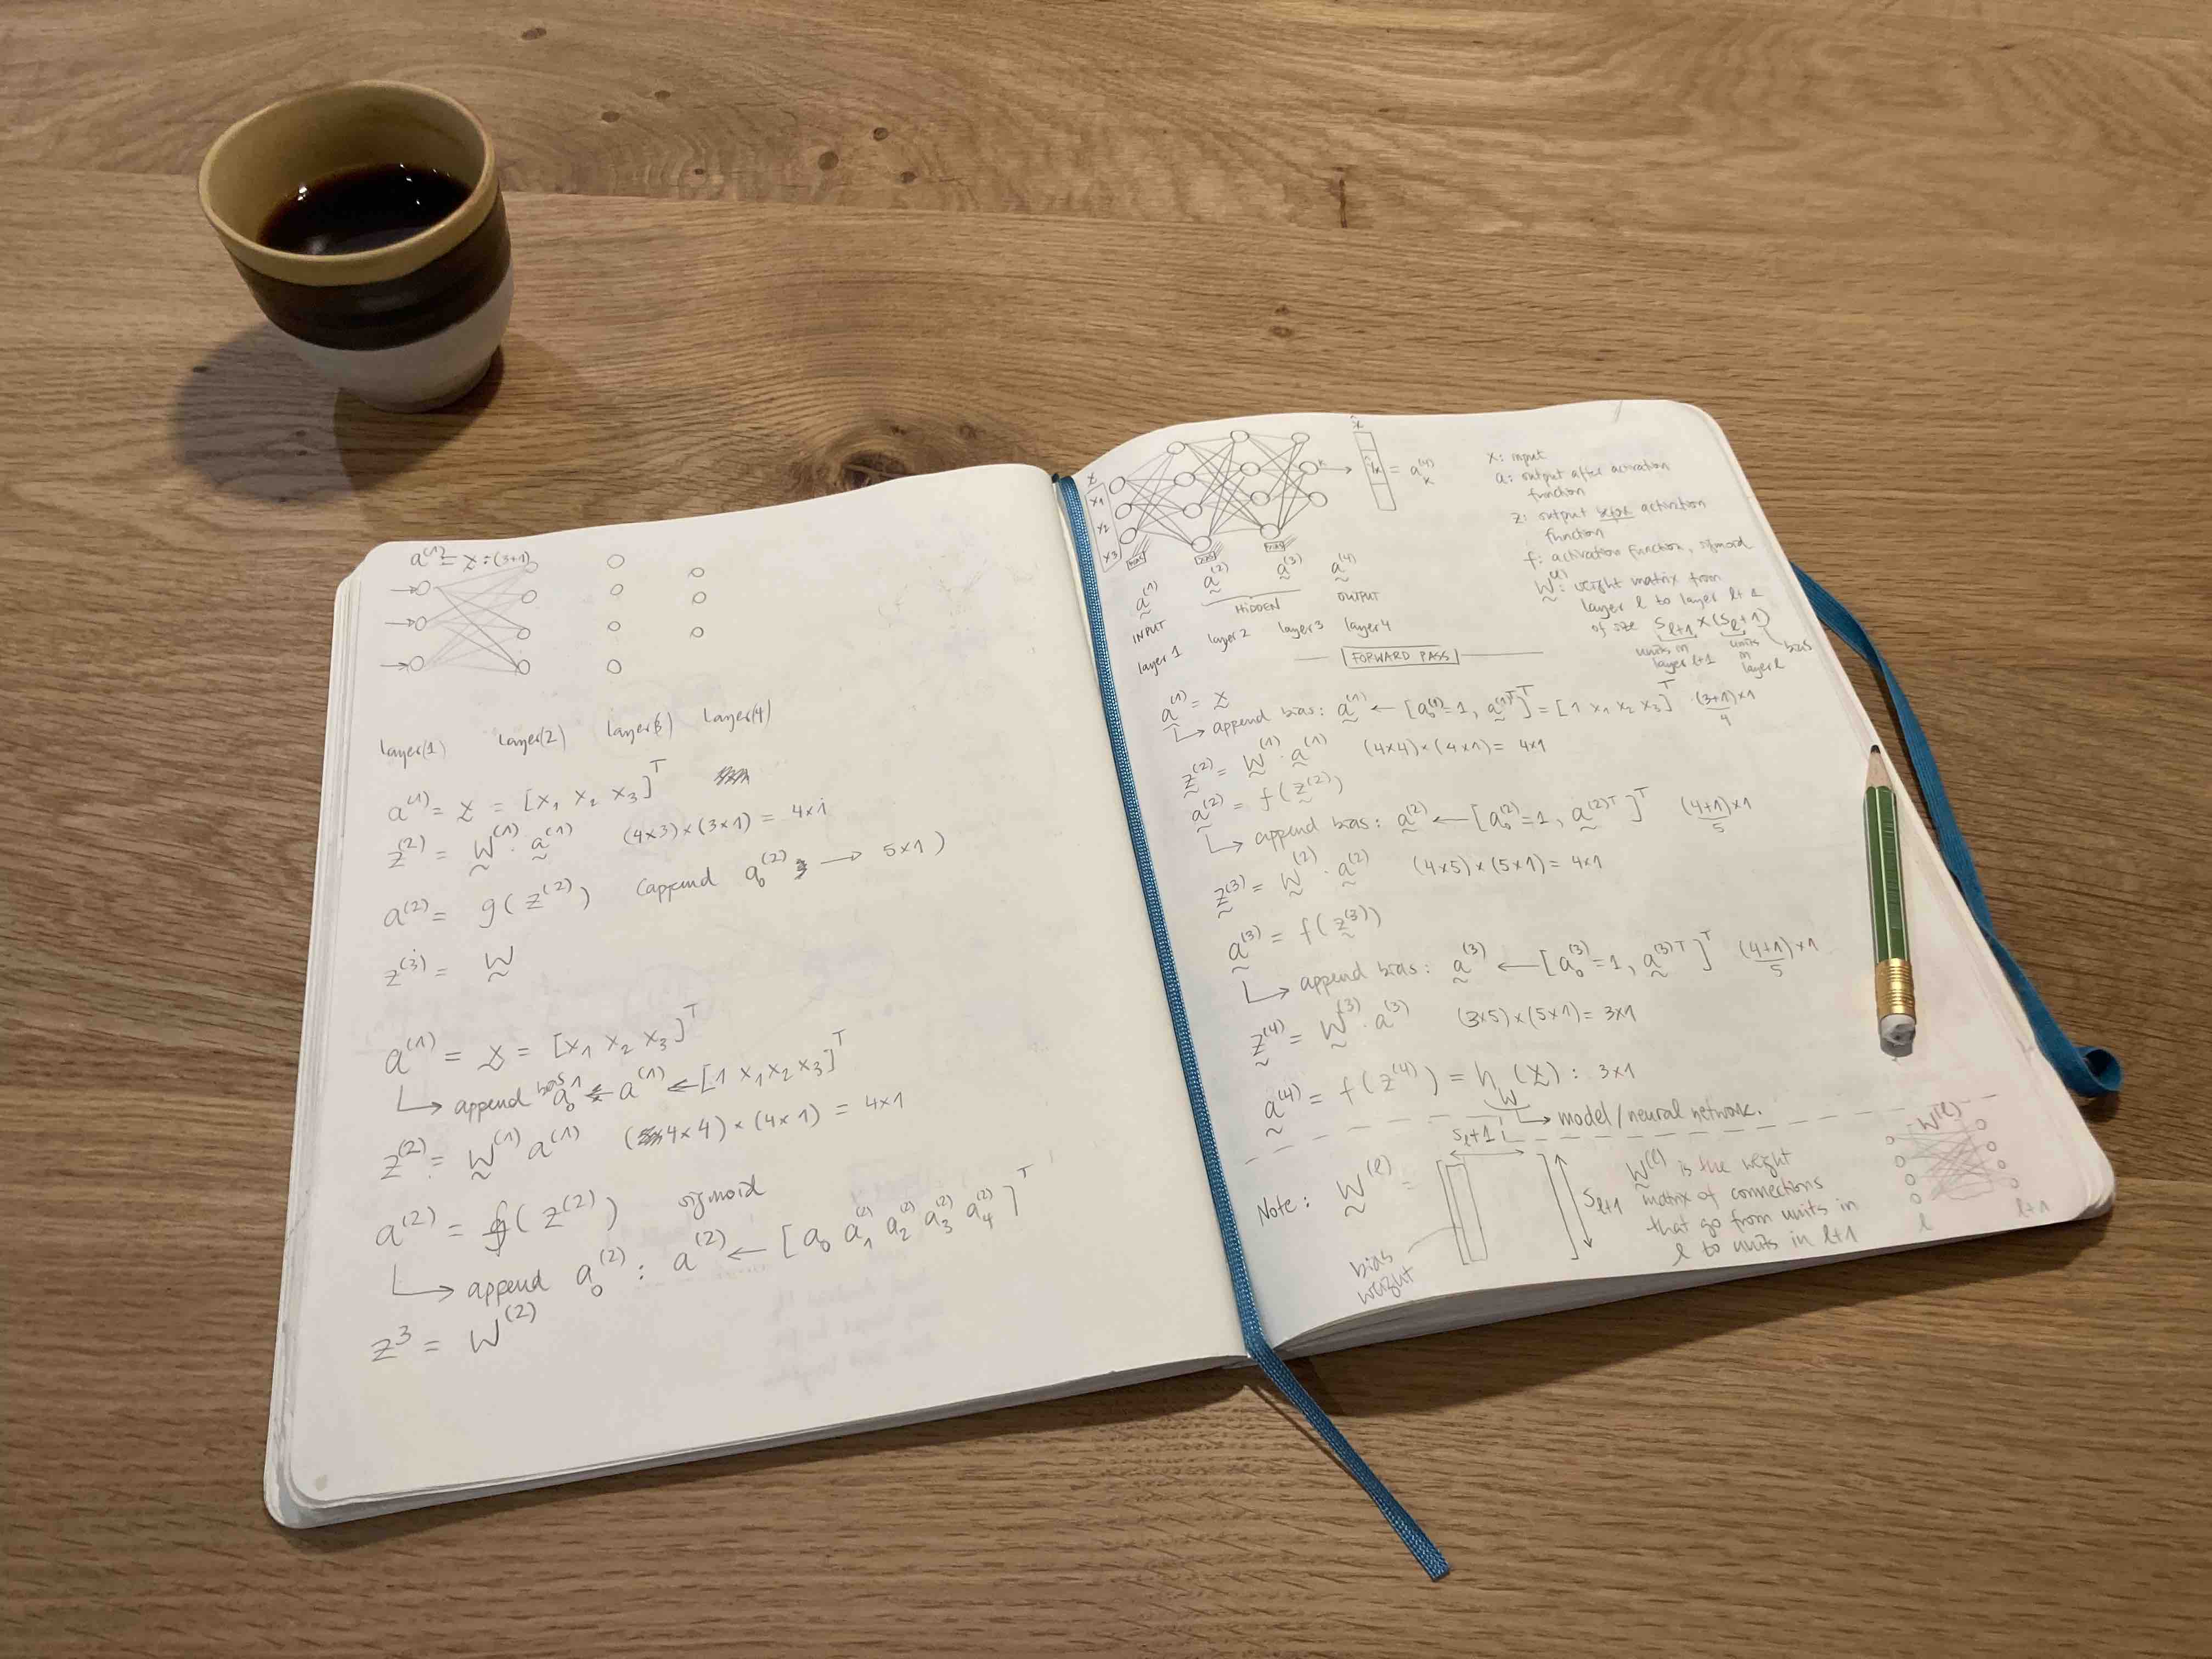 a⁽¹⁾ = x : (3+1)
layer(1) layer(2) layer(3) layer(4)
a⁽¹⁾ = x = [x₁ x₂ x₃]ᵀ
z⁽²⁾ = W⁽¹⁾ · a⁽¹⁾ (4x3) x (3x1) = 4x1
a⁽²⁾ = g(z⁽²⁾) (append a₀⁽²⁾ → 5x1)
z⁽³⁾ = W
a⁽¹⁾ = x = [x₁ x₂ x₃]ᵀ
↳ append bias a₀ a⁽¹⁾ ← [1 x₁ x₂ x₃]ᵀ
z⁽²⁾ = W⁽¹⁾ a⁽¹⁾ (4x4) x (4x1) = 4x1
a⁽²⁾ = f(z⁽²⁾) sigmoid
↳ append a₀⁽²⁾ : a⁽²⁾ ← [a₀ a₁⁽²⁾ a₂⁽²⁾ a₃⁽²⁾ a₄⁽²⁾]ᵀ
z³ = W⁽²⁾
x
x₁
x₂
x₃
bias bias bias
k
= aₖ⁽⁴⁾
a⁽¹⁾ a⁽²⁾ a⁽³⁾ a⁽⁴⁾
INPUT HIDDEN OUTPUT
layer 1 layer 2 layer 3 layer 4
x: input
a: output after activation
function
z: output before activation
function
f: activation function, sigmoid
W⁽ˡ⁾: weight matrix from
layer l to layer l+1
of size Sₗ₊₁ x (Sₗ+1)
units in layer l+1 units in layer l bias
FORWARD PASS
a⁽¹⁾ = x
↳ append bias: a⁽¹⁾ ← [a₀⁽¹⁾=1, a⁽¹⁾ᵀ]ᵀ = [1 x₁ x₂ x₃]ᵀ (3+1)x1
4
z⁽²⁾ = W⁽¹⁾ · a⁽¹⁾ (4x4) x (4x1) = 4x1
a⁽²⁾ = f(z⁽²⁾)
↳ append bias: a⁽²⁾ ← [a₀⁽²⁾=1, a⁽²⁾ᵀ]ᵀ (4+1)x1
5
z⁽³⁾ = W⁽²⁾ · a⁽²⁾ (4x5) x (5x1) = 4x1
a⁽³⁾ = f(z⁽³⁾)
↳ append bias: a⁽³⁾ ← [a₀⁽³⁾=1, a⁽³⁾ᵀ]ᵀ (4+1)x1
5
z⁽⁴⁾ = W⁽³⁾ · a⁽³⁾ (3x5) x (5x1) = 3x1
a⁽⁴⁾ = f(z⁽⁴⁾) = h_W(x) : 3x1
↳ model/neural network.
Note: W⁽ˡ⁾ =
Sₗ+1
Sₗ₊₁
bias
weight
W⁽ˡ⁾ is the weight
matrix of connections
that go from units in
l to units in l+1
W⁽ˡ⁾
l l+1